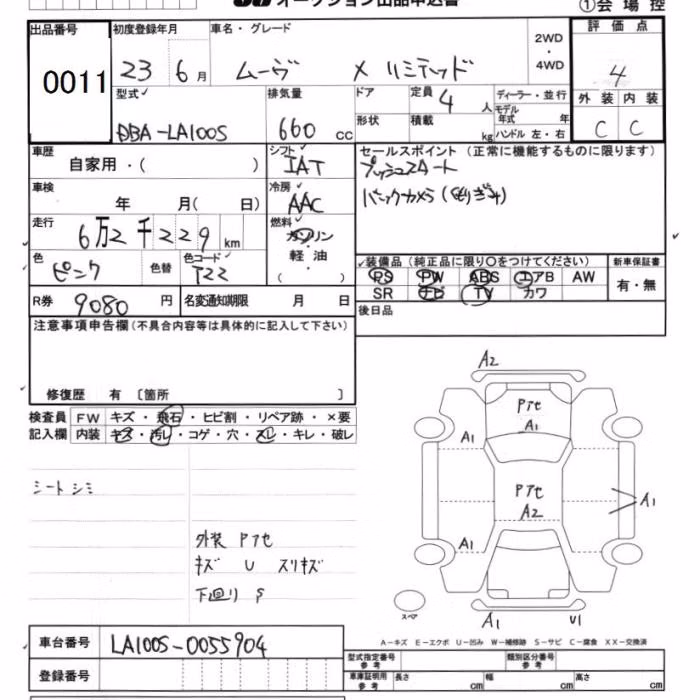 オークション出品申込書
①会場控
出品番号 初度登録年月 車名・グレード 2WD・4WD 評価点
0011 23 6月 ムーヴ X リミテッド 4
型式 排気量 ドア 定員 4人 ディーラー・並行 外装 内装
モデル年式 年
DBA-LA100S 660cc 形状 積載 kg ハンドル 左・右 C C
車歴 シフト セールスポイント (正常に機能するものに限ります)
自家用・( ) IAT プッシュスタート
車検 冷房 バックカメラ
年 月( 日) AAC
走行 燃料
6万2千229km ガソリン
軽油
( )
色 色替 色コード 装備品 (純正品に限り○をつけてください) 新車保証書
ピンク T22 PS PW ABS エアB AW 有・無
SR ナビ TV カワ
R券 9080円 名変通知期限 月 日 後日品
注意事項申告欄(不具合内容等は具体的に記入して下さい)
修復歴 有 〔箇所 〕
検査員 FW キズ・飛石・ヒビ割・リペア跡・×要
記入欄 内装 キズ・汚レ・コゲ・穴・スレ・キレ・破レ
シート シミ
外装 Pアセ
キズ U スリキズ
下廻り S
A2
Pアセ
A1
A1
Pアセ
A2
A1
A1
スペア
A1 U1
A−キズ E−エクボ U−凹み W−補修跡 S−サビ C−腐食 XX−交換済
車台番号 LA100S-0055904
登録番号
型式指定番号 参考 類別区分番号 参考
車庫証明用 参考 長さ cm 幅 cm 高さ cm